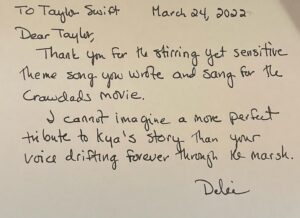 To Taylor Swift March 24, 2022
Dear Taylor,
Thank you for the stirring yet sensitive
theme song you wrote and sang for the
Crawdads movie.
I cannot imagine a more perfect
tribute to Kya's story than your
voice drifting forever through the marsh.
Delia